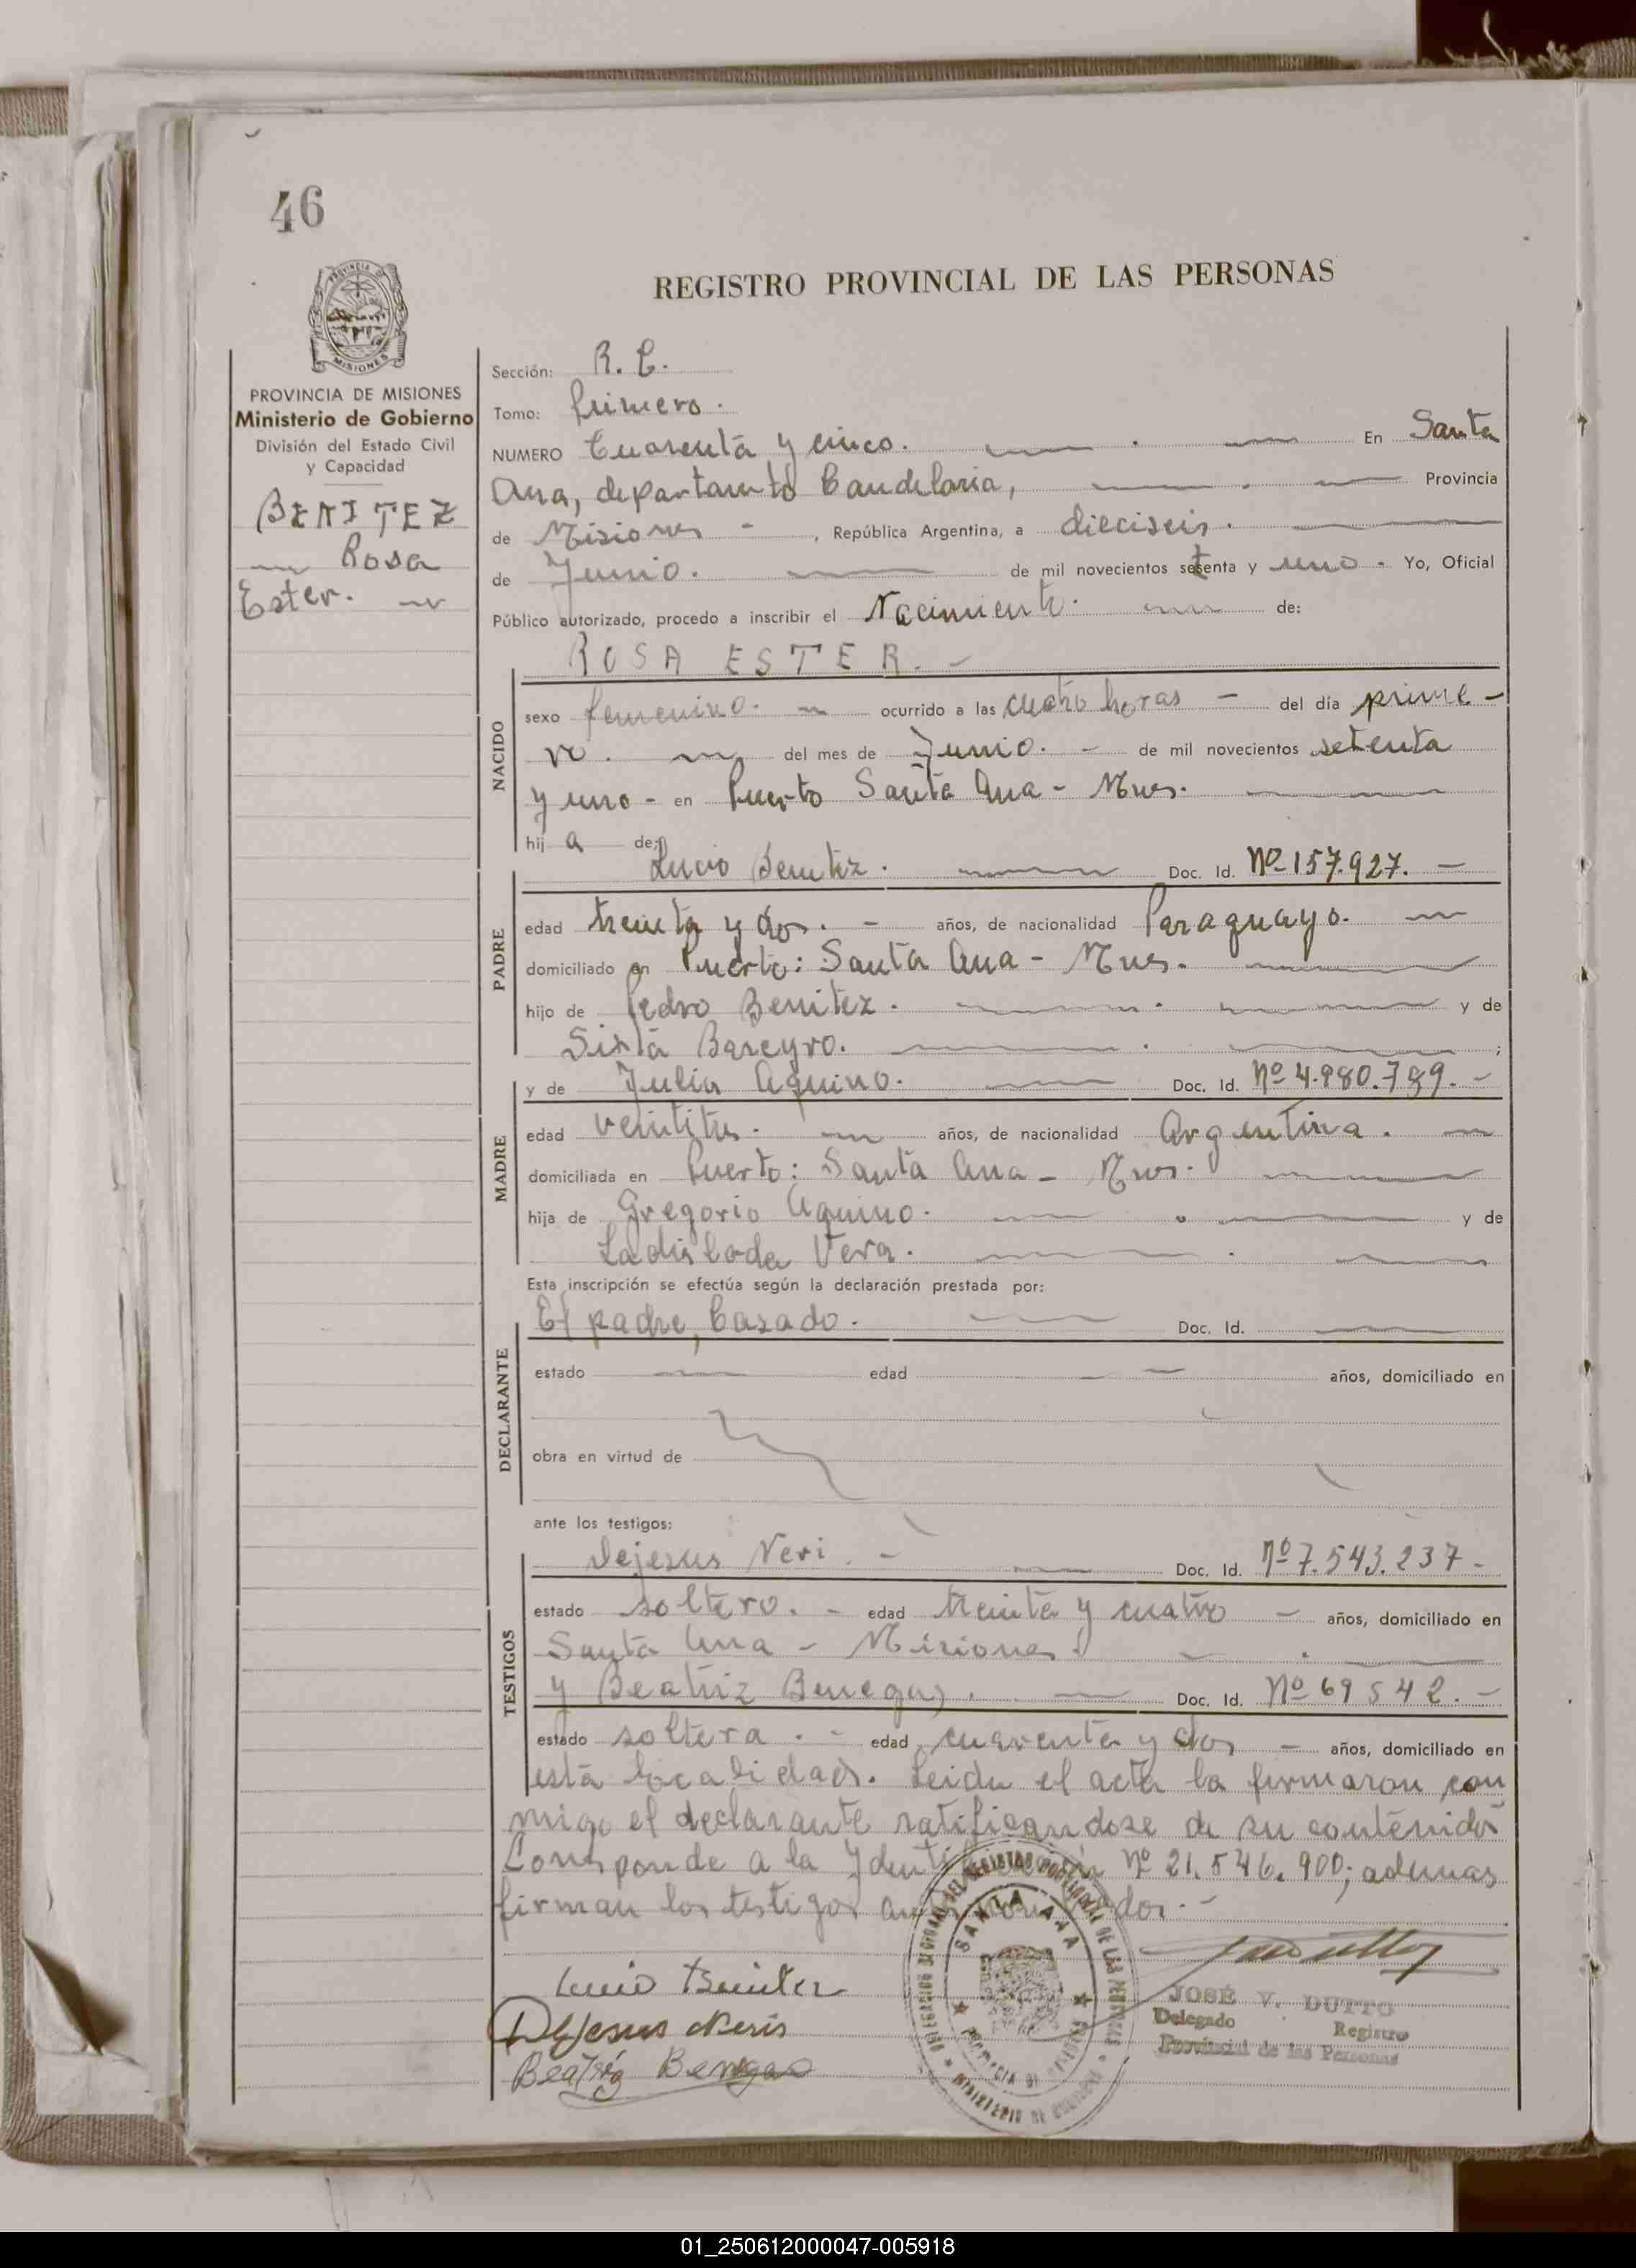 46
PROVINCIA DE
MISIONES
PROVINCIA DE MISIONES
Ministerio de Gobierno
División del Estado Civil
y Capacidad
BENITEZ
Rosa
Ester.
REGISTRO PROVINCIAL DE LAS PERSONAS
Sección: R. C.
Tomo: Primero.
NUMERO Cuarenta y cinco. En Santa
Ana, departamento Candelaria, Provincia
de Misiones - , República Argentina, a dieciseis.
de Junio. de mil novecientos setenta y uno - Yo, Oficial
Público autorizado, procedo a inscribir el Nacimiento. de:
ROSA ESTER. -
NACIDO
sexo femenino. ocurrido a las cuatro horas - del día prime-
ro. del mes de Junio. - de mil novecientos setenta
y uno - en Puerto Santa Ana - Mnes.
hij a de:
Lucio Benitez. Doc. Id. Nº 157.927. -
PADRE
edad treinta y dos. - años, de nacionalidad Paraguayo.
domiciliado en Puerto: Santa Ana - Mnes.
hijo de Pedro Benitez. y de
Sixta Bareyro. ;
y de Julia Aquino. Doc. Id. Nº 4.980.789. -
MADRE
edad veintitres. años, de nacionalidad Argentina.
domiciliada en Puerto: Santa Ana - Mnes.
hija de Gregorio Aquino. y de
Ladislada Vera.
Esta inscripción se efectúa según la declaración prestada por:
El padre, Casado. Doc. Id.
DECLARANTE
estado edad años, domiciliado en
obra en virtud de
ante los testigos:
Dejesus Neri. - Doc. Id. Nº 7.543.237 -
TESTIGOS
estado soltero. - edad treinta y cuatro - años, domiciliado en
Santa Ana - Misiones.
y Beatriz Benegas. Doc. Id. Nº 69542. -
estado soltera. - edad cuarenta y dos - años, domiciliado en
esta localidad. Leida el acta la firmaron con
migo el declarante ratificandose de su contenido
Corresponde a la Nº 21.546.900; ademas
firman los testigos
Lucio Benitez
Dejesus Neris
Beatriz Benegas
SANTA ANA
JOSÉ V. DUTTO
Delegado Registro
Provincial de las Personas
01_250612000047-005918